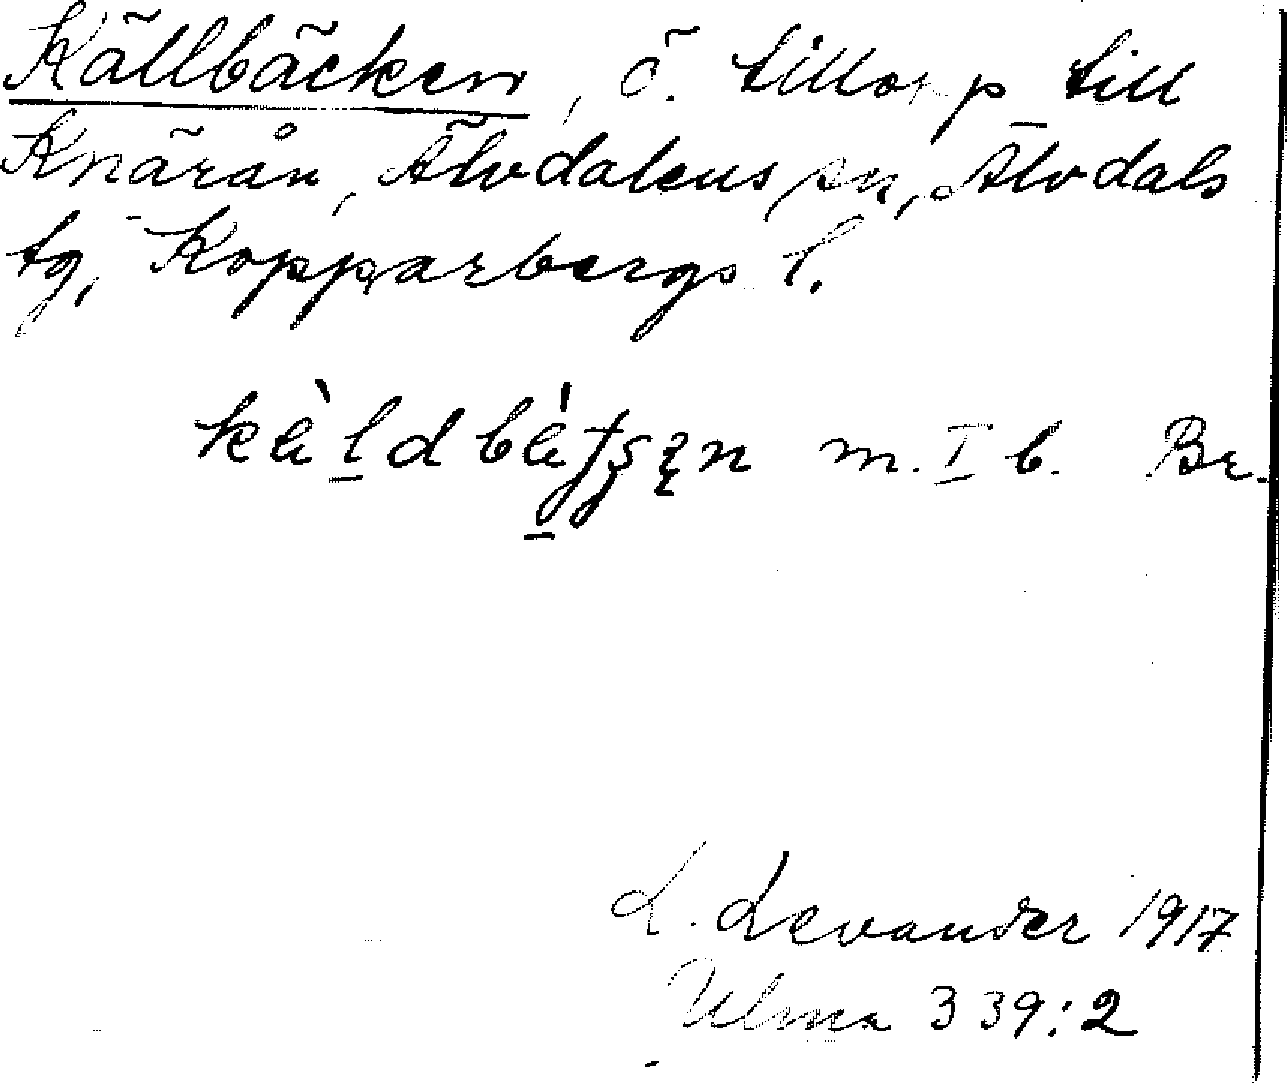 Källbäcken, ö. tillopp till
Knärån, Älvdalens sn, Älvdals
tg, Kopparbergs l.
m. I b. Br.
L. Levander 1917
Ulma 339:2